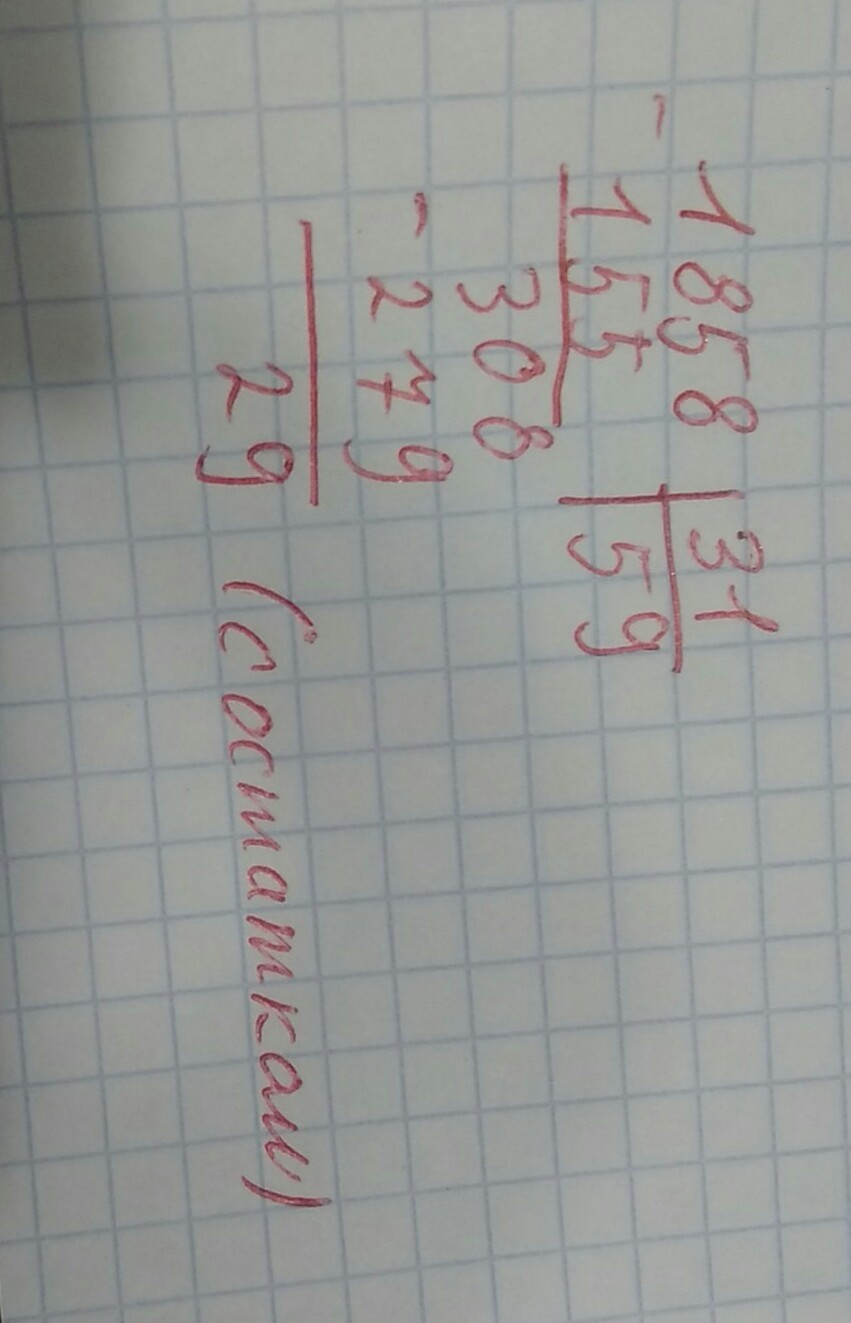 - 1858 | 31
155 | 59
308
- 279
29 (с остаткам)